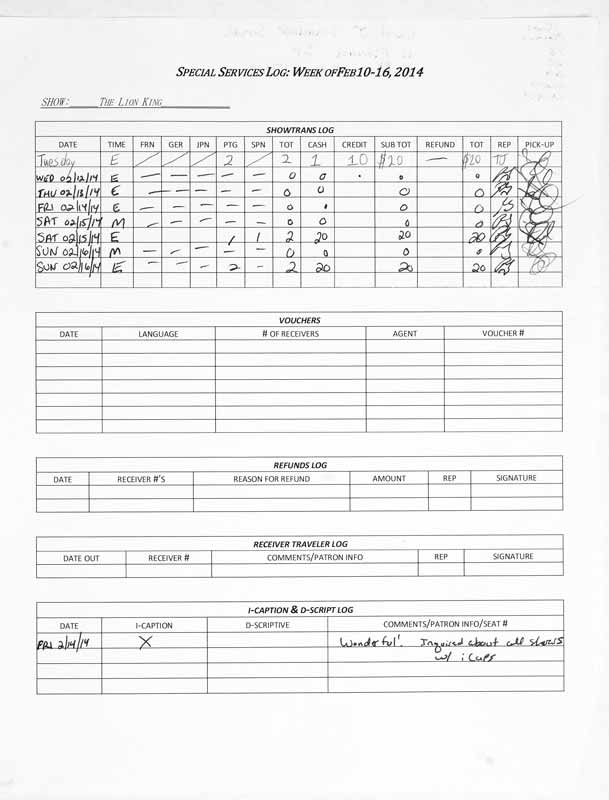 SPECIAL SERVICES LOG: WEEK OFFEB10-16, 2014
SHOW: THE LION KING
SHOWTRANS LOG
DATE TIME FRN GER JPN PTG SPN TOT CASH CREDIT SUB TOT REFUND TOT REP PICK-UP
Tuesday E / / / 2 / 2 1 10 $20 — $20 TJ
WED 02/12/14 E — — — — — 0 0 · 0 0
THU 02/13/14 E — — — — — 0 0 0 0
FRI 02/14/14 E — — — — — 0 0 0
SAT 02/15/14 M — — — — — 0 0 0 0
SAT 02/15/14 E 1 1 2 20 20 20
SUN 02/16/14 M — — — — — 0 0 0 0
SUN 02/16/14 E — — — 2 — 2 20 20 20
VOUCHERS
DATE LANGUAGE # OF RECEIVERS AGENT VOUCHER #
REFUNDS LOG
DATE RECEIVER #'S REASON FOR REFUND AMOUNT REP SIGNATURE
RECEIVER TRAVELER LOG
DATE OUT RECEIVER # COMMENTS/PATRON INFO REP SIGNATURE
I-CAPTION & D-SCRIPT LOG
DATE I-CAPTION D-SCRIPTIVE COMMENTS/PATRON INFO/SEAT #
FRI 2/14/14 X Wonderful! Inquired about all shows
w/ iCaps